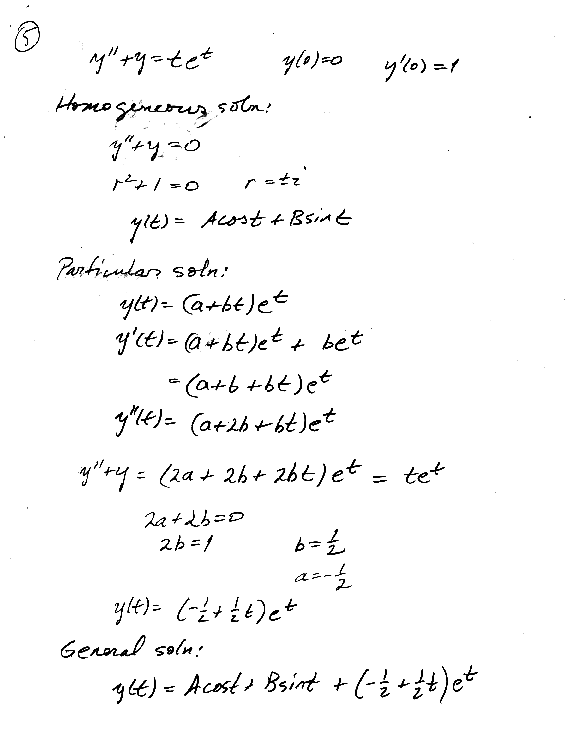 ⑤
y"+y=te^t y(0)=0 y'(0)=1
Homogeneous soln:
y"+y=0
r²+1=0 r=±i
y(t)= Acost + Bsint
Particular soln:
y(t)= (a+bt)e^t
y'(t)= (a+bt)e^t + be^t
=(a+b+bt)e^t
y"(t)= (a+2b+bt)e^t
y"+y = (2a+2b+2bt)e^t = te^t
2a+2b=0
2b=1 b=1/2
a=-1/2
y(t)= (-1/2+1/2t)e^t
General soln:
y(t) = Acost + Bsint + (-1/2+1/2t)e^t